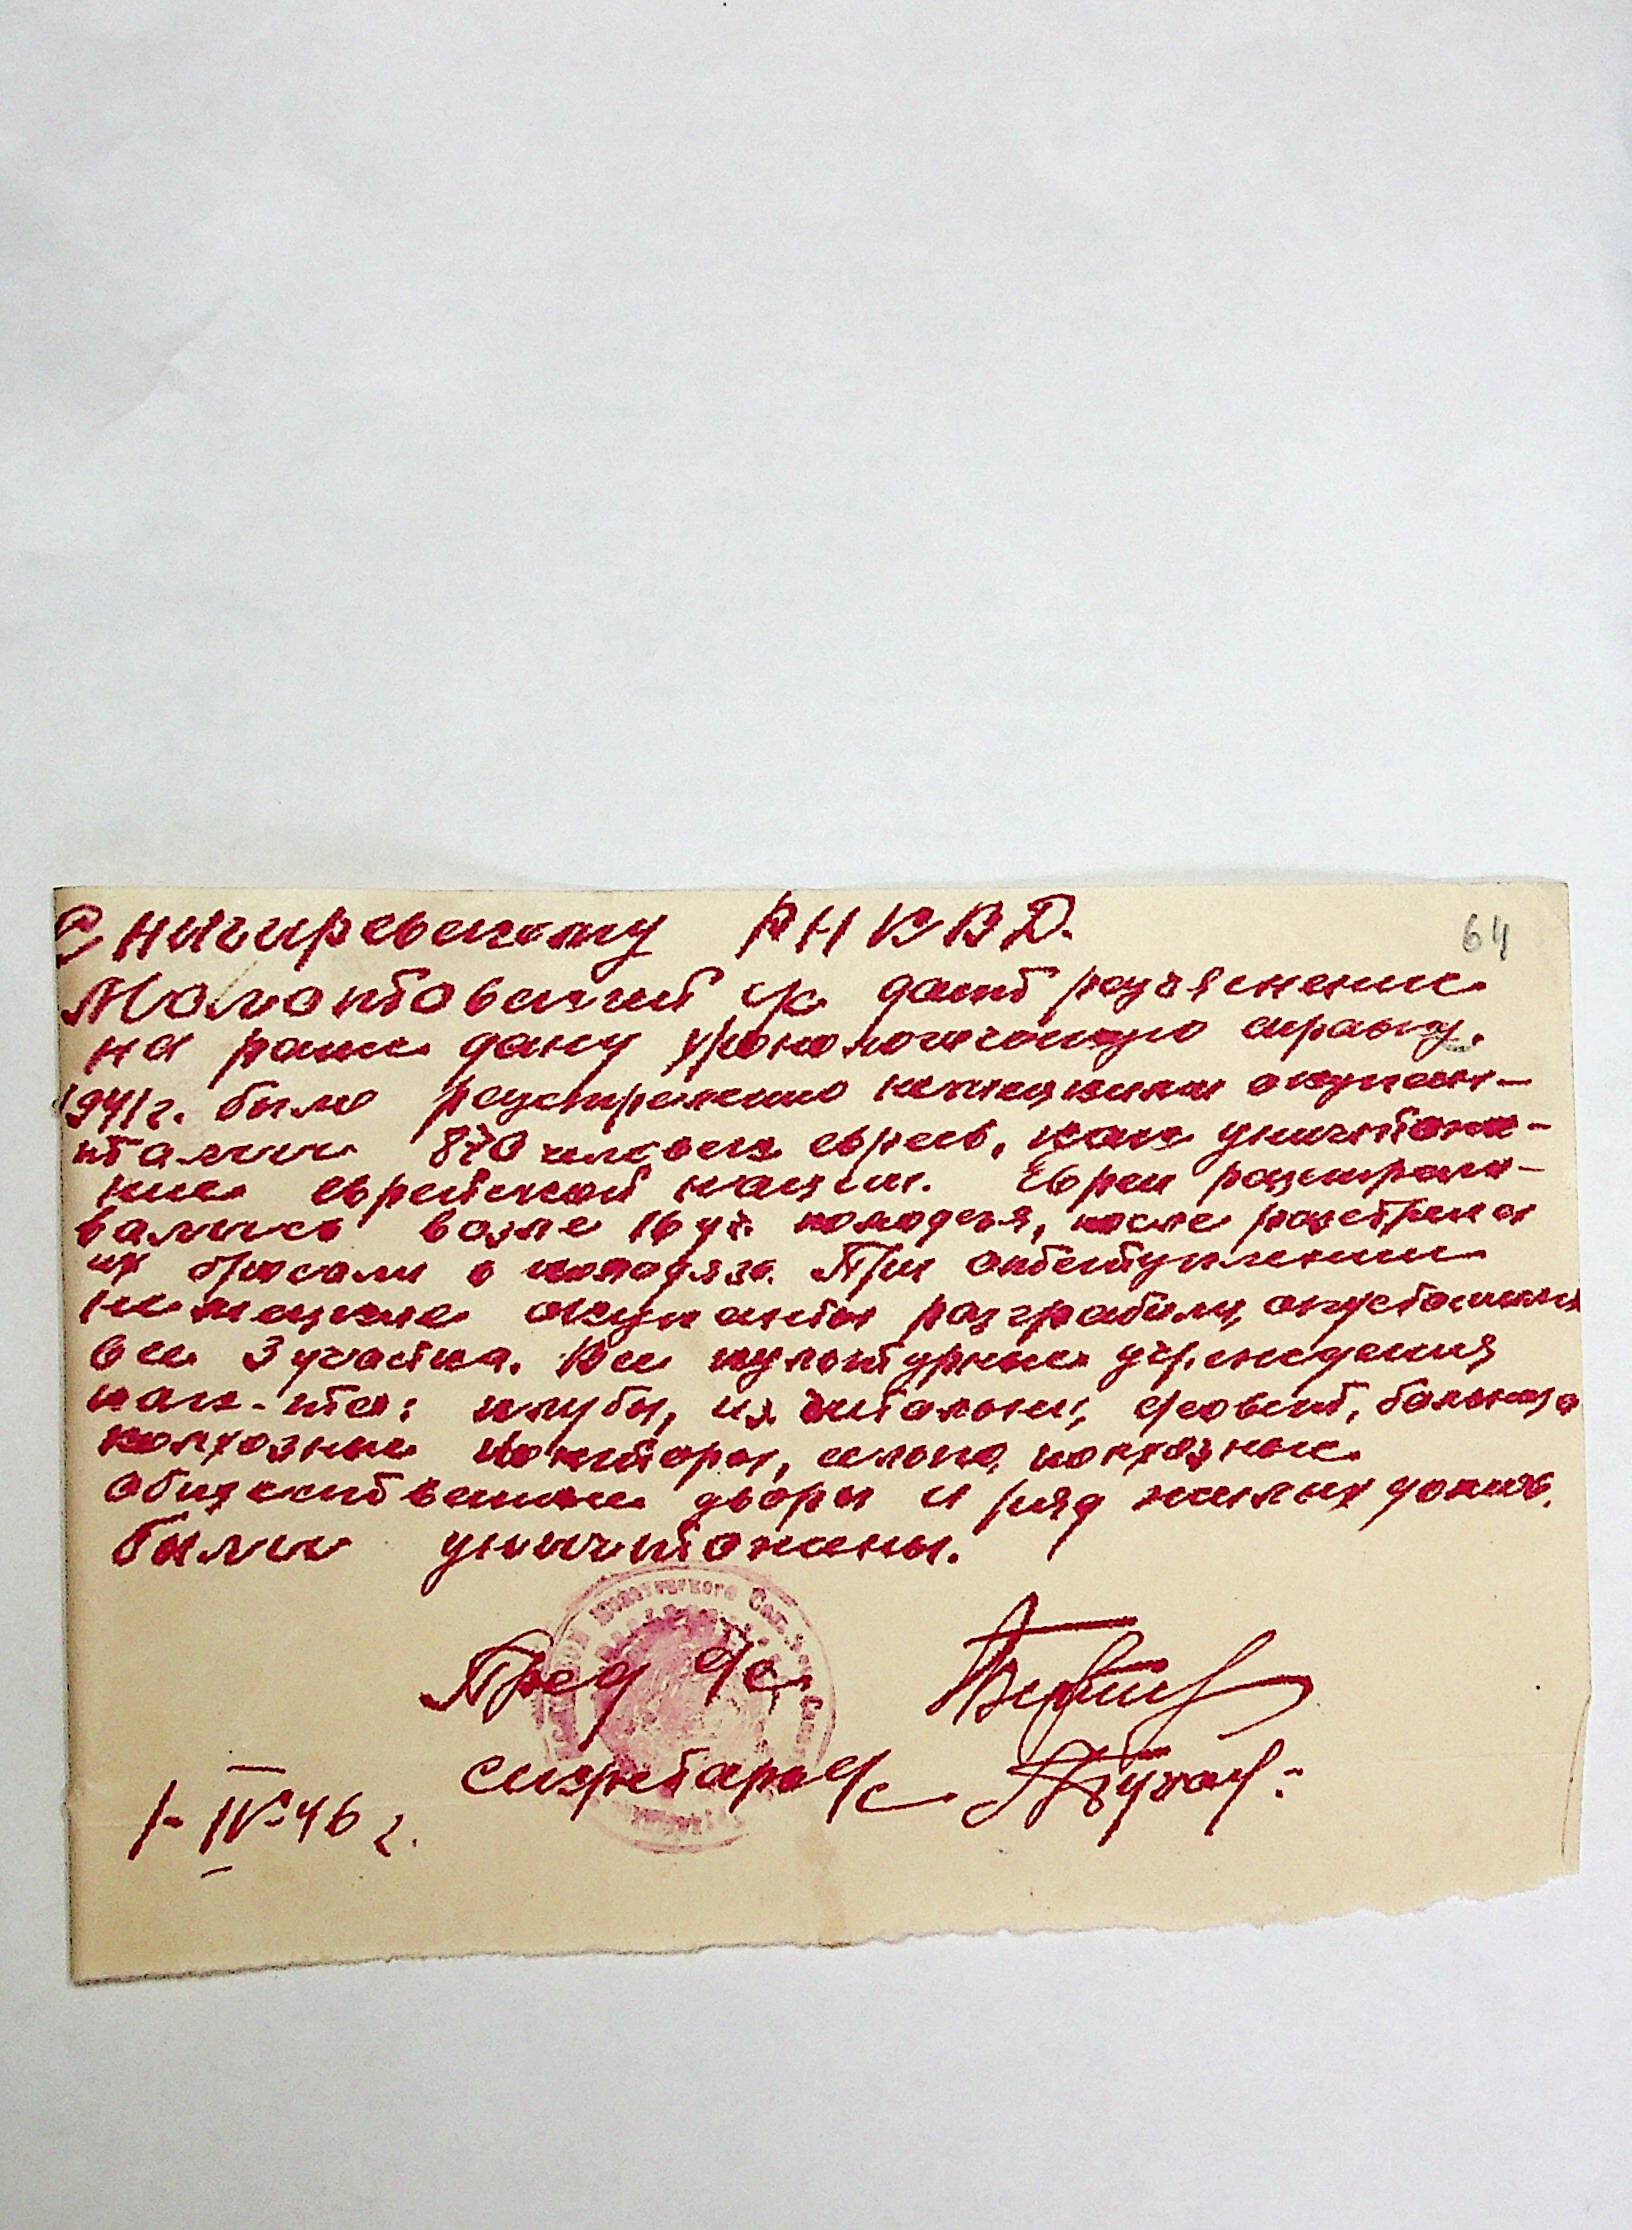 64
Снигиревскому РНКВД.
Молотовский с/с дает разъяснение
на ранее дану хронологическую справку.
1941 г. было разстреляно немецкими окупан-
тами 870 человек евреев, как уничтоже-
ние еврейской нации. Евреи разстрели-
вались возле 16 уч. колодезя, после разстрела
их бросали в колодязь. При отбеступлении
немецкие окупанты разграбили, опустошили
все 3 участка. Все культурные учреждения
как-то: клубы, из читальни, с/совет, больница
колхозные конторы, сельпо, колхозные
общественные дворы и ряд жилых домов.
были уничтожены.
Пред с/с
секретарь с/с
1-IV-46 г.